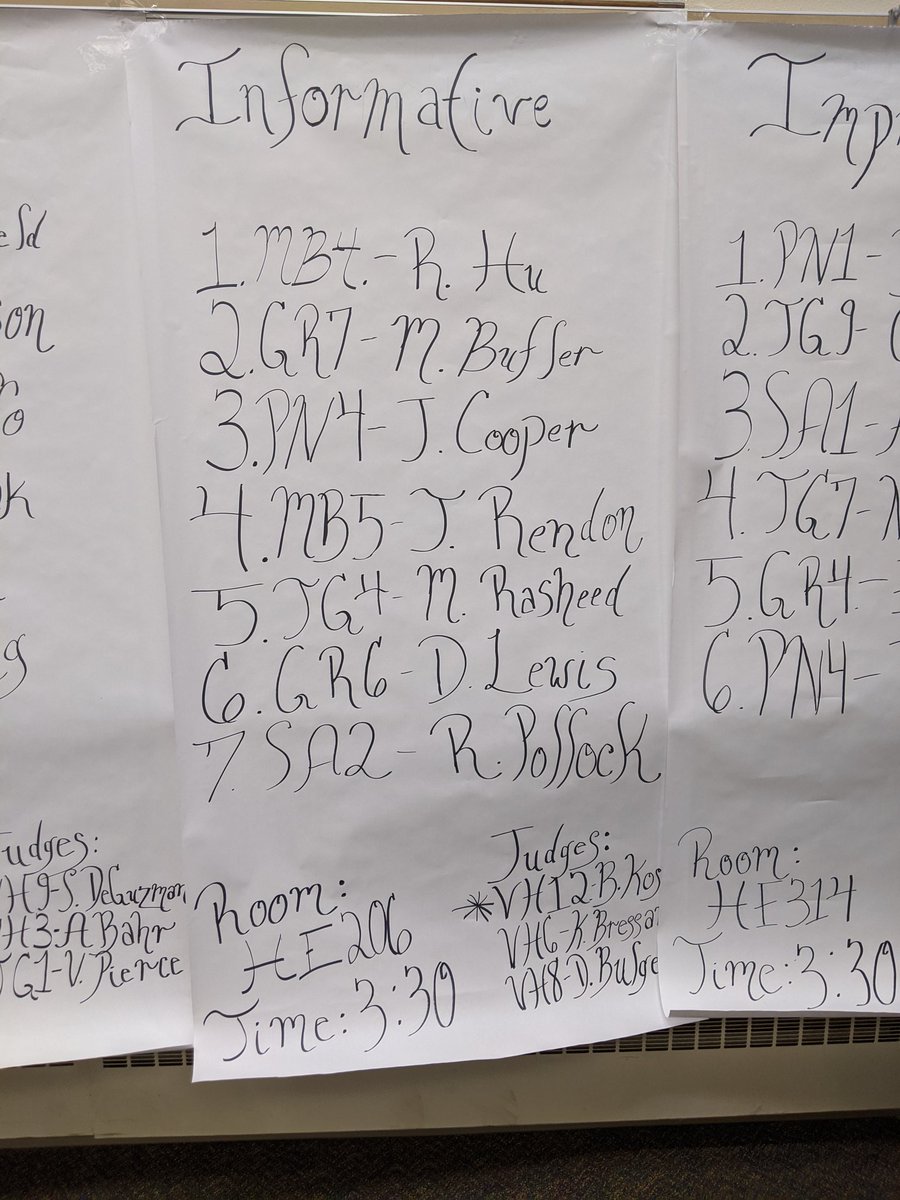 Informative
1. MB4. - R. Hu
2. GR7 - M. Buffer
3. PN4 - J. Cooper
4. MB5 - J. Rendon
5. JG4 - M. Rasheed
6. GR6 - D. Lewis
7. SA2 - R. Pollock
Room:
HE206
Time: 3:30
Judges:
*VH12-B. Kos
VH6-K. Bressa
VH8-D. Bufge
Judges:
VH9-S. DeGuzman
VH3-A Bahr
JG1-V. Pierce
1. PN1-
2. JG9-
3. SA1-
4. JG7-
5. GR4-
6. PN4-
Room:
HE314
Time: 3:30